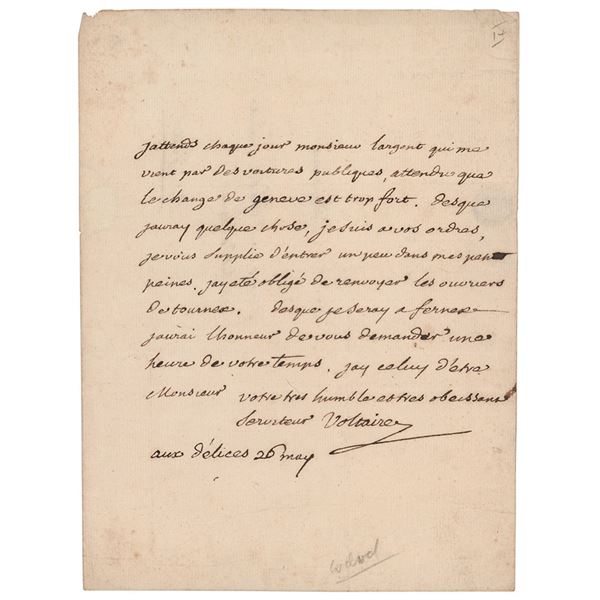 14
jattends chaque jour monsieur largent qui me
vient par des voitures publiques, attendu que
le change de geneve est trop fort. desque
jauray quelque chose, je suis a vos ordres,
je vous supplie d'entrer un peu dans mes
peines. jay eté obligé de renvoyer les ouvriers
de tournex. desque je seray a fernex
jaurai lhonneur de vous demander une
heure de votre temps. jay celuy d'etre
Monsieur votre tres humble et tres obeissant
serviteur Voltaire
aux délices 26 may